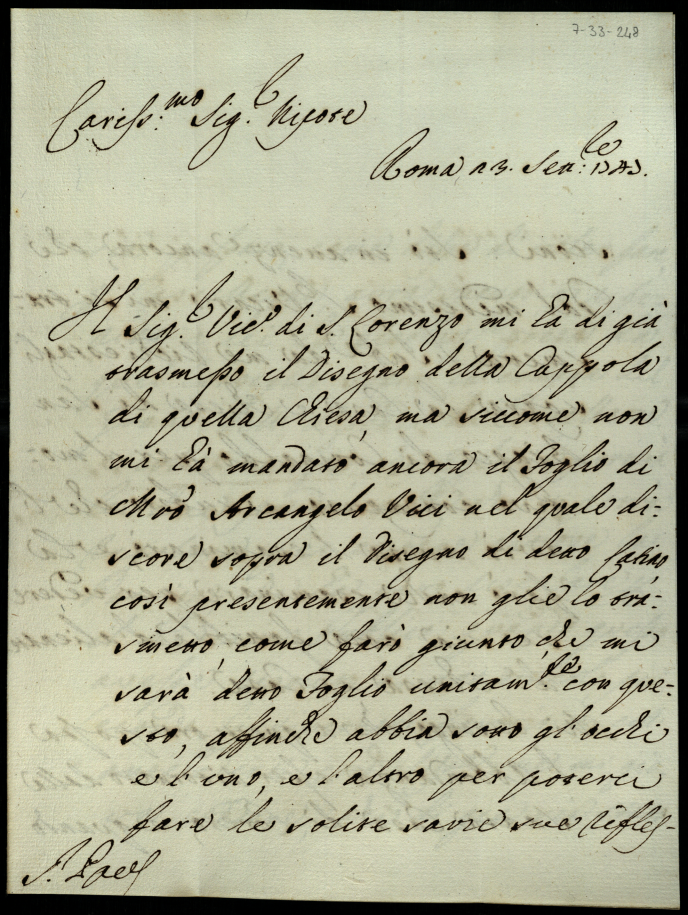 7-33-248
Cariss:mo Sig.e Nipote
Roma a 3. Sett:re 1743.
Il Sig.e Vic.o di S. Lorenzo mi hà di già
trasmesso il Disegno della Cuppola
di quella Chiesa, ma siccome non
mi hà mandato ancora il Foglio di
Mrõ Arcangelo Vici nel quale di-
score sopra il Disegno di detto Catino
così presentemente non glie lo tra-
smetto, come farò giunto che mi
sarà detto Foglio unitam.te con que-
sto, affinche abbia sotto gl'occhi
e l'uno, e l'altro per poterci
fare le solite savie sue refles-